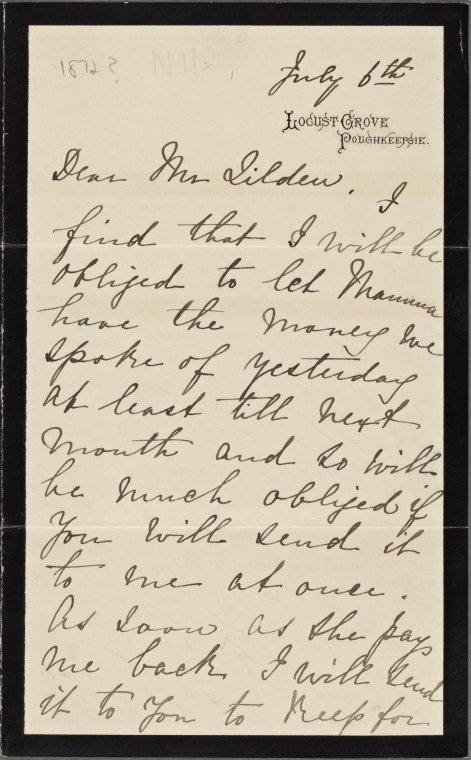 1872?
July 6th
LOCUST GROVE
POUGHKEEPSIE.
Dear Mr Tilden. I
find that I will be
obliged to let Mamma
have the money we
spoke of yesterday
at least till next
month and so will
be much obliged if
you will send it
to me at once.
As soon as she pays
me back I will send
it to you to keep for